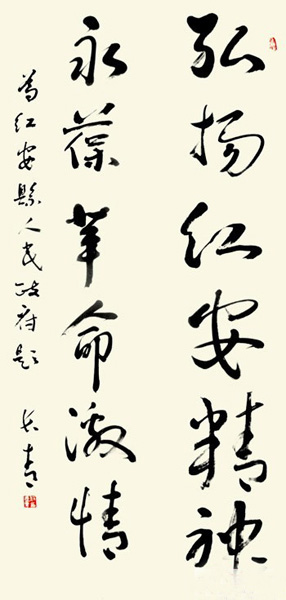 弘扬红安精神
永葆革命激情
为红安县人民政府题 长青